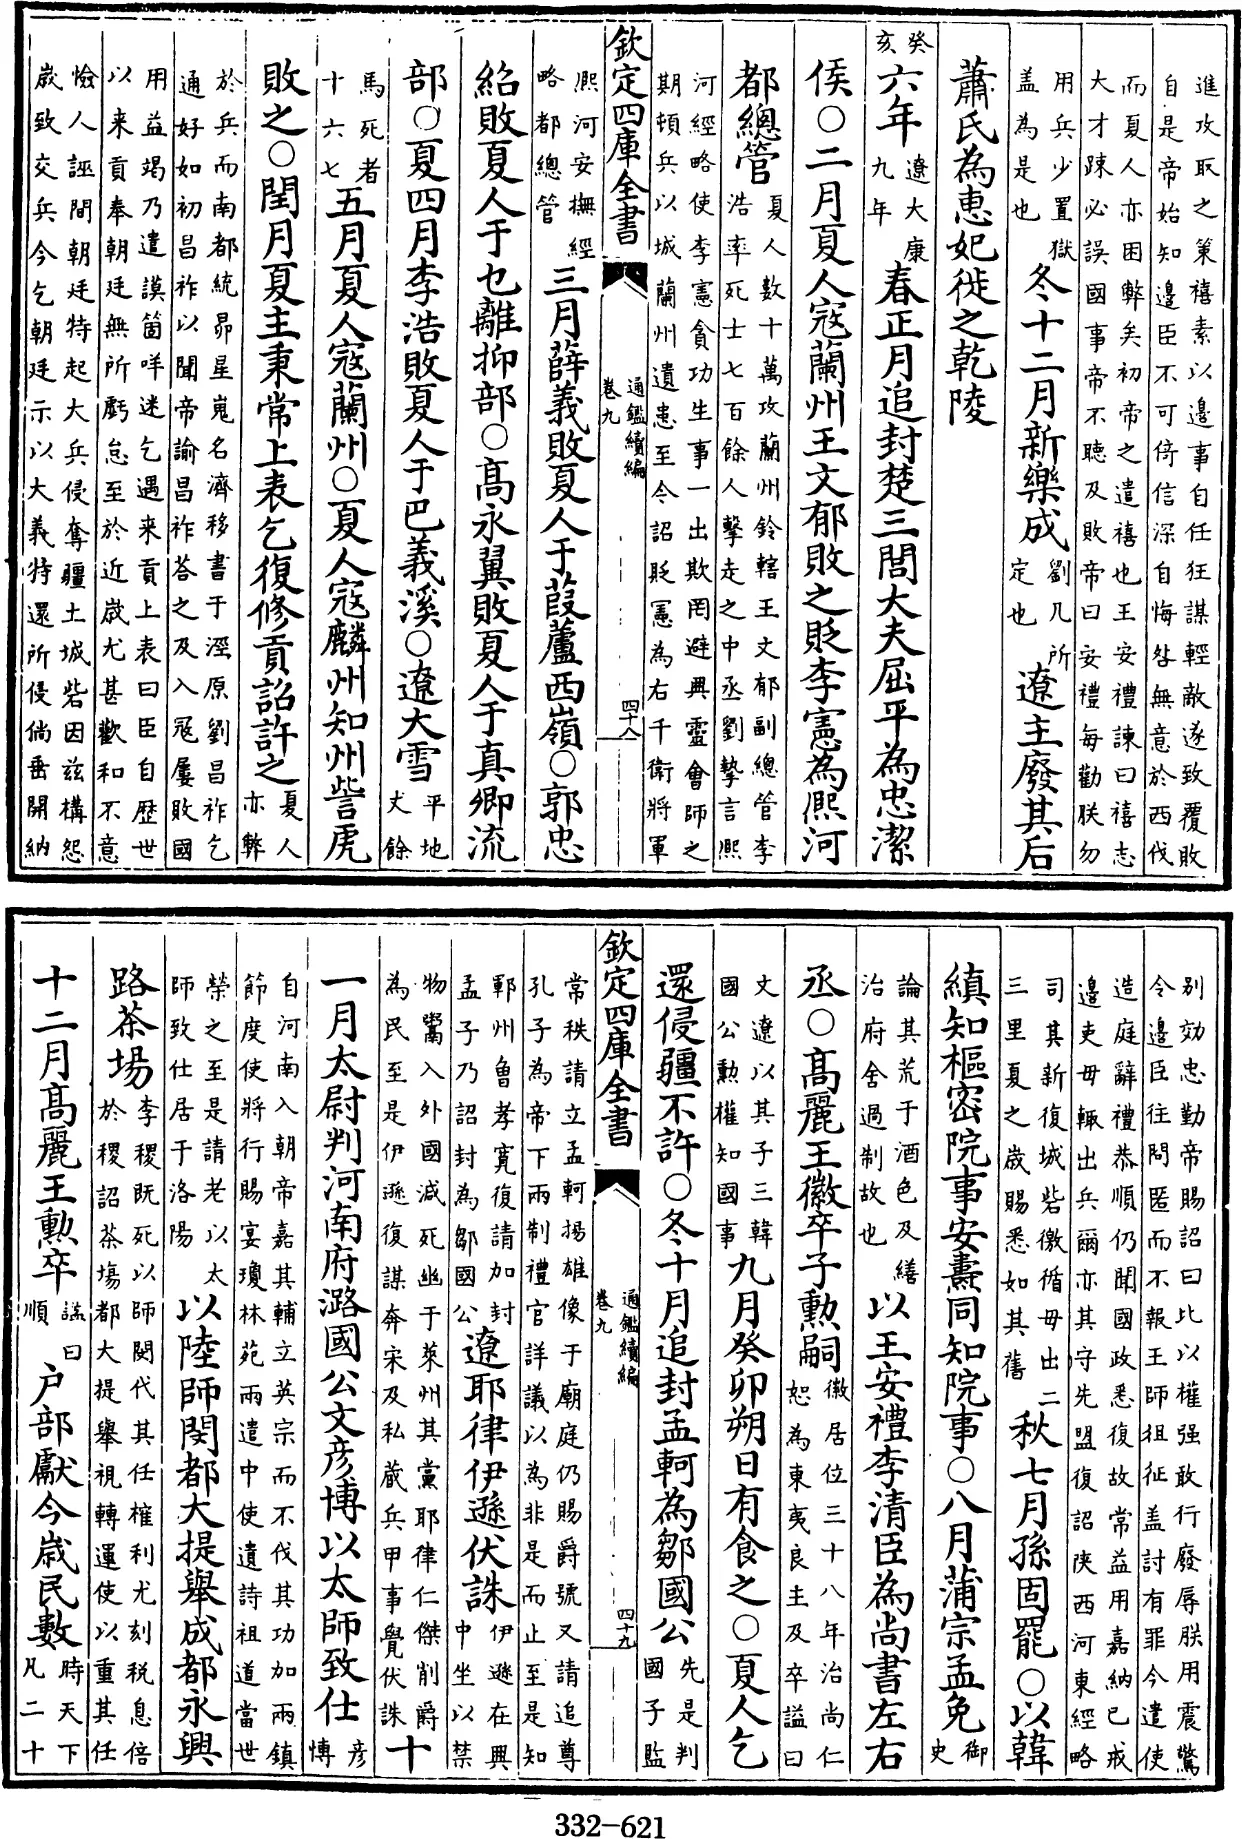 進攻取之策禧素以邊事自任狂謀輕敵遂致覆敗
自是帝始知邊臣不可倚信深自悔咎無意於西伐
而夏人亦困弊矣初帝之遣禧也王安禮諫曰禧志
大才踈必誤國事帝不聽及敗帝曰安禮每勸朕勿
用兵少置獄盖為是也冬十二月新樂成劉几所定也遼主廢其后
蕭氏為惠妃徙之乾陵
癸亥六年遼大康九年春正月追封楚三閭大夫屈平為忠潔
侯○二月夏人寇蘭州王文郁敗之貶李憲為熈河
都總管夏人數十萬攻蘭州鈐轄王文郁副總管李浩率死士七百餘人擊走之中丞劉摯言熈
河經略使李憲貪功生事一出欺罔避興靈會師之
期頓兵以城蘭州遺患至今詔貶憲為右千衛將軍
欽定四庫全書
通鑑續編
卷九
四十八
熈河安撫經略都總管三月薛義敗夏人于葭蘆西嶺○郭忠
紹敗夏人于乜離抑部○高永翼敗夏人于真卿流
部○夏四月李浩敗夏人于巴義溪○遼大雪平地丈餘
馬死者十六七五月夏人寇蘭州○夏人寇麟州知州訾虎
敗之○閏月夏主秉常上表乞復修貢詔許之夏人亦弊
於兵而南都統昴星嵬名濟移書于涇原劉昌祚乞
通好如初昌祚以聞帝諭昌祚荅之及入冦屢敗國
用益竭乃遣謨箇咩迷乞遇来貢上表曰臣自歴世
以来貢奉朝廷無所虧怠至於近歲尤甚歡和不意
憸人誣間朝廷特起大兵侵奪疆土城砦因兹構怨
歲致交兵今乞朝廷示以大義特還所侵倘垂開納
别効忠勤帝賜詔曰比以權强敢行廢辱朕用震驚
令邊臣往問匿而不報王師徂征盖討有罪今遣使
造庭辭禮恭順仍聞國政悉復故常益用嘉納已戒
邊吏毋輙出兵爾亦其守先盟復詔陕西河東經略
司其新復城砦徼循毋出二三里夏之歲賜悉如其舊秋七月孫固罷○以韓
縝知樞密院事安燾同知院事○八月蒲宗孟免御史
論其荒于酒色及繕治府舍過制故也以王安禮李清臣為尚書左右
丞○高麗王徽卒子勲嗣徽居位三十八年治尚仁恕為東夷良主及卒謚曰
文遼以其子三韓國公勲權知國事九月癸卯朔日有食之○夏人乞
還侵疆不許○冬十月追封孟軻為鄒國公先是判國子監
常秩請立孟軻揚雄像于廟庭仍賜爵號又請追尊
孔子為帝下兩制禮官詳議以為非是而止至是知
欽定四庫全書
通鑑續編
卷九
四十九
鄆州魯孝寛復請加封孟子乃詔封為鄒國公遼耶律伊遜伏誅伊遜在興中坐以禁
物鬻入外國減死幽于萊州其黨耶律仁傑削爵
為民至是伊遜復謀奔宋及私藏兵甲事覺伏誅十
一月太尉判河南府潞國公文彦博以太師致仕彦博
自河南入朝帝嘉其輔立英宗而不伐其功加兩鎮
節度使將行賜宴瓊林苑兩遣中使遺詩祖道當世
榮之至是請老以太師致仕居于洛陽以陸師閔都大提舉成都永興
路茶場李稷既死以師閔代其任榷利尤刻税息倍於稷詔茶塲都大提舉視轉運使以重其任
十二月高麗王勲卒謚曰順户部獻今歲民數時天下凡二十
332-621